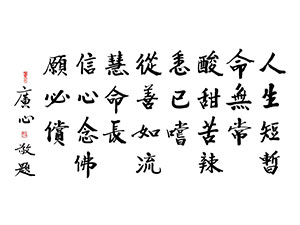 人生短暫
命無常
酸甜苦辣
悉已嚐
從善如流
慧命長
信心念佛
願必償
廣心敬題